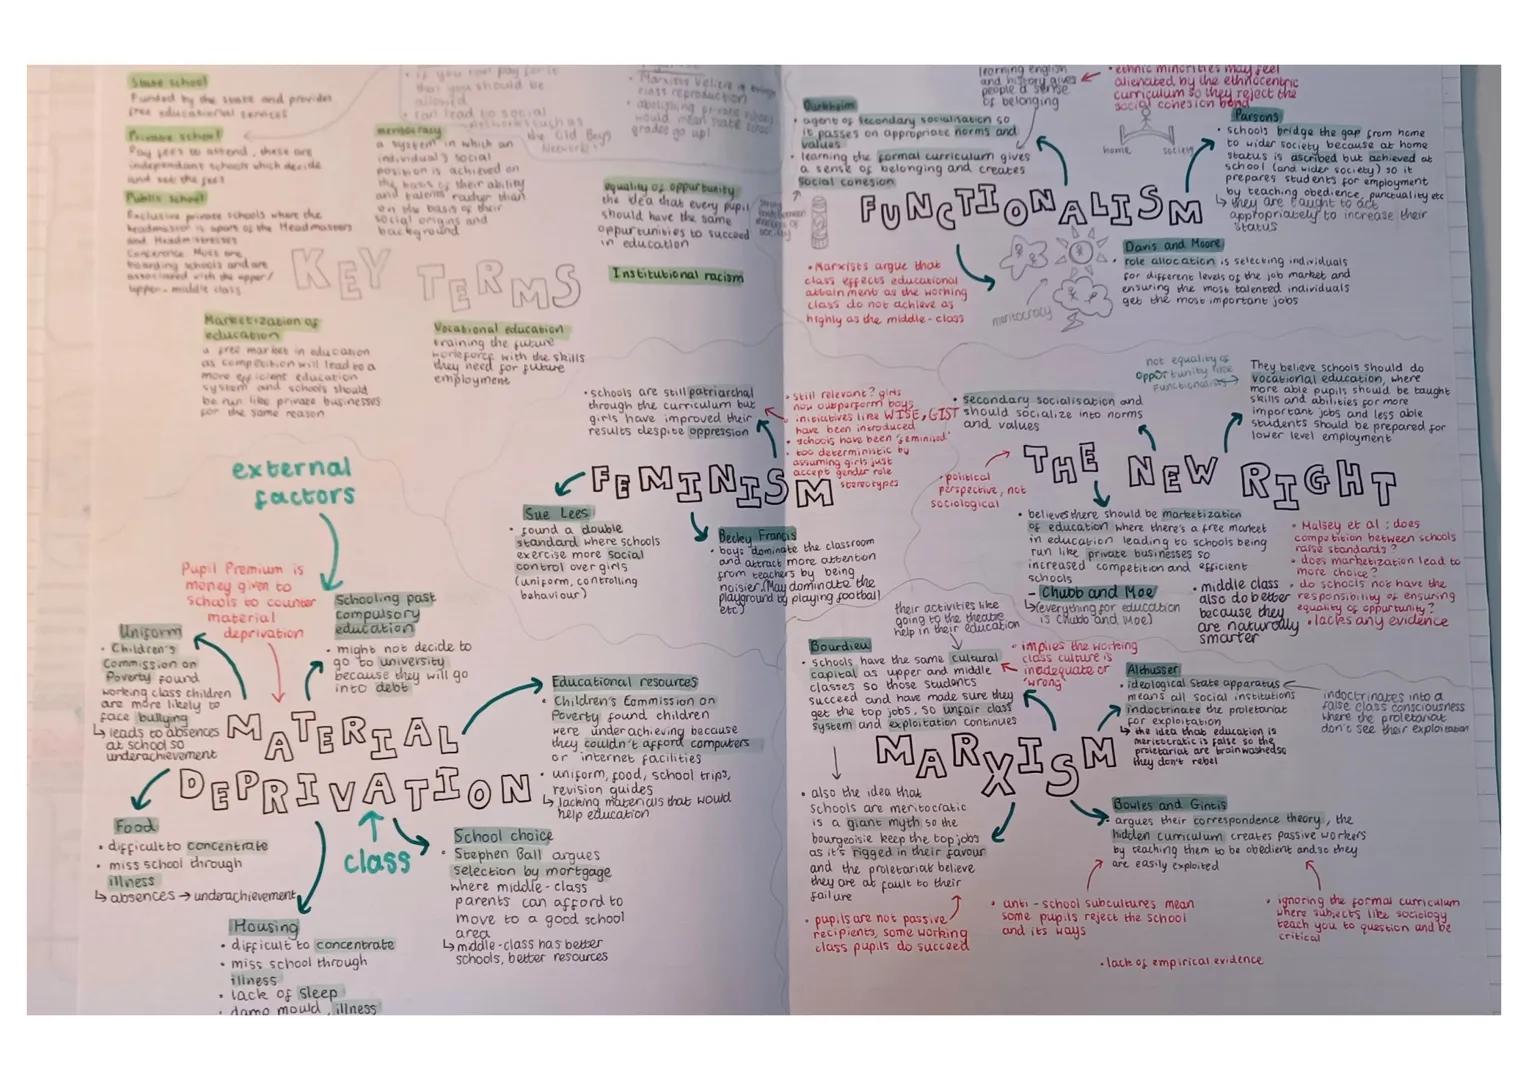 State school
Funded by the state and provides
free educational services
Private school
Pay fees to attend, these are
independant schools which decide
and set the fees
Public school
Exclusive private schools where the
headmaster is apart of the Headmasters
and Headmistresses
Conference. Most are
boarding schools and are
associated with the upper/
upper-middle class
that you should be
allowed
can lead to social
networks such as
the Old Boys
Network
Marxists believe it brings
class reproduction
abolishing private schools
would mean state school
grades go up!
meritocracy
a system in which an
individual's social
position is achieved on
the basis of their ability
and talents rather than
on the basis of their
social origins and
background
equality of oppurtunity
the idea that every pupil
should have the same
oppurtunities to succeed
in education
Institutional racism
KEY TERMS
Marketization of
education
a free market in education
as competition will lead to a
more efficient education
system and schools should
be run like private businesses
for the same reason
Vocational education
training the future
workforce with the skills
they need for future
employment
• schools are still patriarchal
through the curriculum but
girls have improved their
results despite oppression
• still relevant? girls
now outperform boys
initiatives like WISE, GIST
have been introduced
• schools have been 'feminised'
• too deterministic by
assuming girls just
accept gender role
stereotypes
FEMINISM
Sue Lees
• found a double
standard where schools
exercise more social
control over girls
(uniform, controlling
behaviour)
Becky Francis
• boys dominate the classroom
and attract more attention
from teachers by being
noisier (May dominate the
playground by playing football
etc)
external
factors
Pupil Premium is
money given to
schools to counter
material
deprivation
Schooling past
compulsory
education
• might not decide to
go to university
because they will go
into debt
Uniform
• Children's
Commission on
Poverty found
working class children
are more likely to
face bullying
↳ leads to absences
at school so
underachievement
MATERIAL
DEPRIVATION
Educational resources
• Children's Commission on
Poverty found children
were underachieving because
they couldn't afford computers
or internet facilities
• uniform, food, school trips,
revision guides
↳ lacking materials that would
help education
Food
• difficult to concentrate
• miss school through
illness
↳ absences → underachievement
class
School choice
• Stephen Ball argues
selection by mortgage
where middle-class
parents can afford to
move to a good school
area
↳ middle-class has better
schools, better resources
Housing
• difficult to concentrate
• miss school through
illness
• lack of sleep
• damp mould, illness
learning english
and history gives
people a sense
of belonging
• ethnic minorities may feel
alienated by the ethnocentric
curriculum so they reject the
social cohesion bond
Durkheim
• agent of secondary socialisation so
it passes on appropriate norms and
values
• learning the formal curriculum gives
a sense of belonging and creates
social cohesion
home society
Parsons
• schools bridge the gap from home
to wider society because at home
status is ascribed but achieved at
school (and wider society) so it
prepares students for employment
by teaching obedience, punctuality etc
↳ they are taught to act
appropriately to increase their
status
FUNCTIONALISM
• Marxists argue that
class effects educational
attainment as the working
class do not achieve as
highly as the middle-class
meritocracy
Davis and Moore
• role allocation is selecting individuals
for different levels of the job market and
ensuring the most talented individuals
get the most important jobs
not equality of
oppurtunity like
Functionalists
• secondary socialisation and
should socialize into norms
and values
They believe schools should do
vocational education, where
more able pupils should be taught
skills and abilities for more
important jobs and less able
students should be prepared for
lower level employment
THE NEW RIGHT
• political
perspective, not
sociological
• believes there should be marketization
of education where there's a free market
in education leading to schools being
run like private businesses so
increased competition and efficient
schools
- Chubb and Moe
↳ (everything for education
is Chubb and Moe)
• middle class
also do better
because they
are naturally
smarter
• Malsey et al: does
competition between schools
raise standards?
• does marketization lead to
more choice?
• do schools not have the
responsibility of ensuring
equality of oppurtunity?
• lacks any evidence
their activities like
going to the theatre
help in their education
Bourdieu
• schools have the same cultural
capital as upper and middle
classes so those students
succeed and have made sure they
get the top jobs, so unfair class
system and exploitation continues
• implies the working
class culture is
inadequate or
'wrong'
Althusser
• ideological State apparatus
means all social institutions
indoctrinate the proletariat
for exploitation
↳ the idea that education is
meritocratic is false so the
proletariat are brainwashed so
they don't rebel
indoctrinates into a
false class consciousness
where the proletariat
don't see their exploitation
MARXISM
• also the idea that
schools are meritocratic
is a giant myth so the
bourgeoisie keep the top jobs
as it's rigged in their favour
and the proletariat believe
they are at fault to their
failure
Bowles and Gintis
• argues their correspondence theory, the
hidden curriculum creates passive workers
by teaching them to be obedient and so they
are easily exploited
• pupils are not passive
recipients, some working
class pupils do succeed
• anti-school subcultures mean
some pupils reject the school
and its ways
• ignoring the formal curriculum
where subjects like sociology
teach you to question and be
critical
• lack of empirical evidence